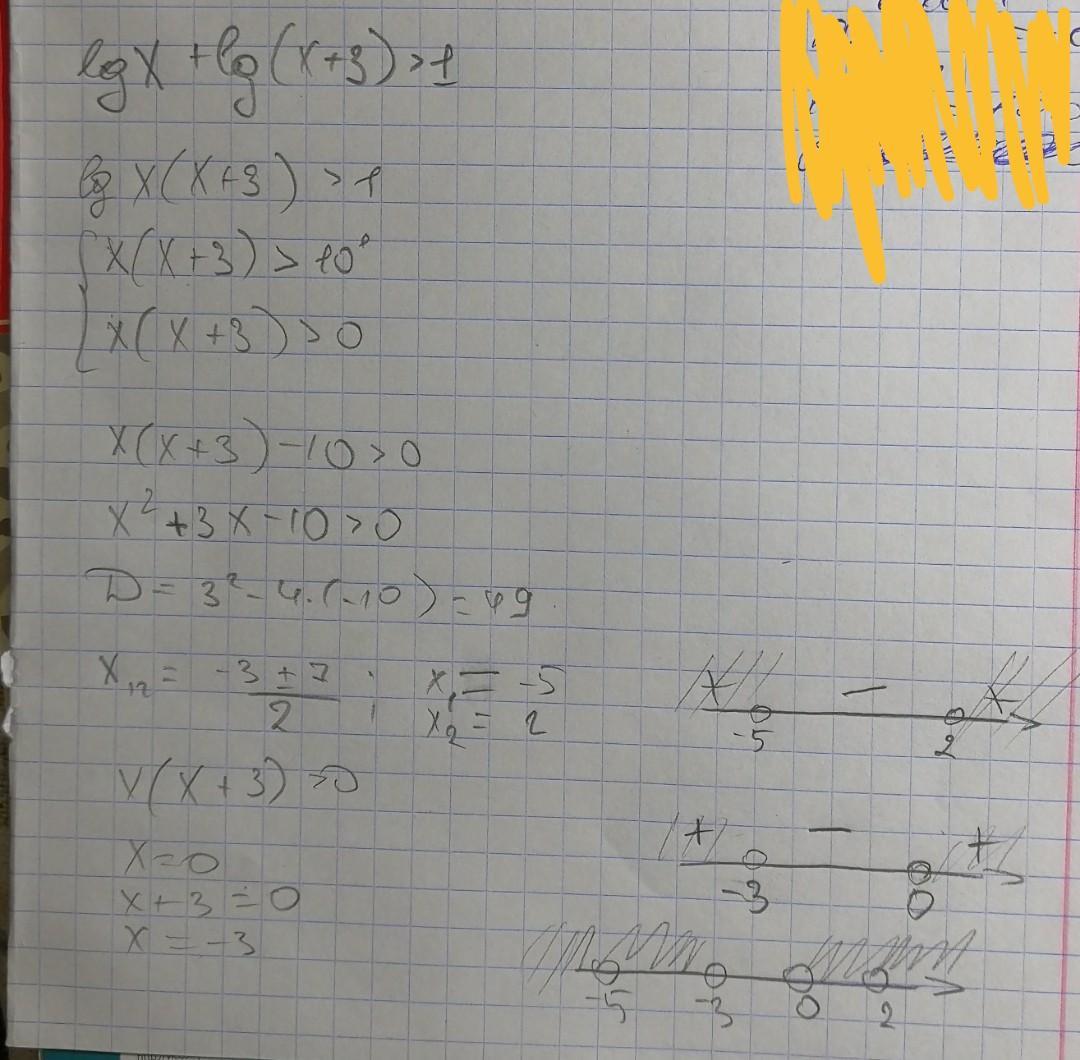 lg x + lg (x+3) > 1
lg x(x+3) > 1
x(x+3) > 10¹
x(x+3) > 0
x(x+3) - 10 > 0
x² + 3x - 10 > 0
D = 3² - 4·(-10) = 49
x₁,₂ = (-3 ± 7)/2 ; x₁ = -5
x₂ = 2
+ − +
-5 2
x(x+3) > 0
+ − +
-3 0
x = 0
x + 3 = 0
x = -3
-5 -3 0 2